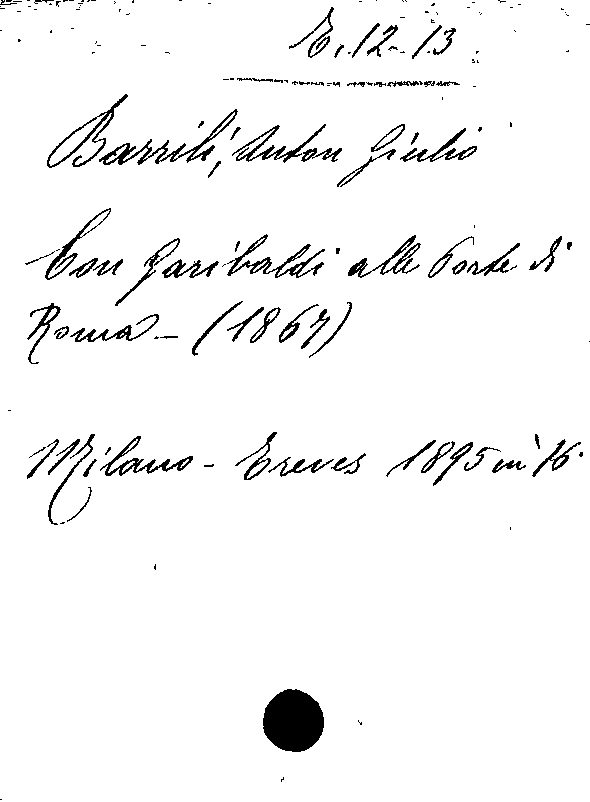 E. 12-13
Barrili, Anton Giulio
Con Garibaldi alle Porte di
Roma - (1867)
Milano - Treves 1895 in 16.